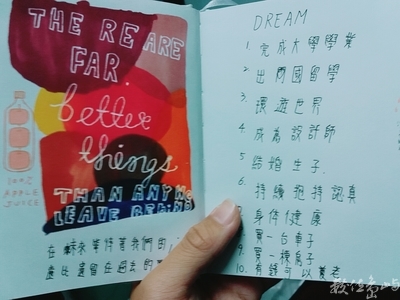 THERE ARE
FAR
better
things
THAN ANY WE
LEAVE BEHIND
100%
APPLE
JUICE
在未來等待著我們的
遠比遺留在過去的
DREAM
1. 完成大學學業
2. 出國留學
3. 環遊世界
4. 成為設計師
5. 結婚生子.
6. 持續抱持認真
身體健康
買一台車子
9. 買一棟房子
10. 有錢可以養老